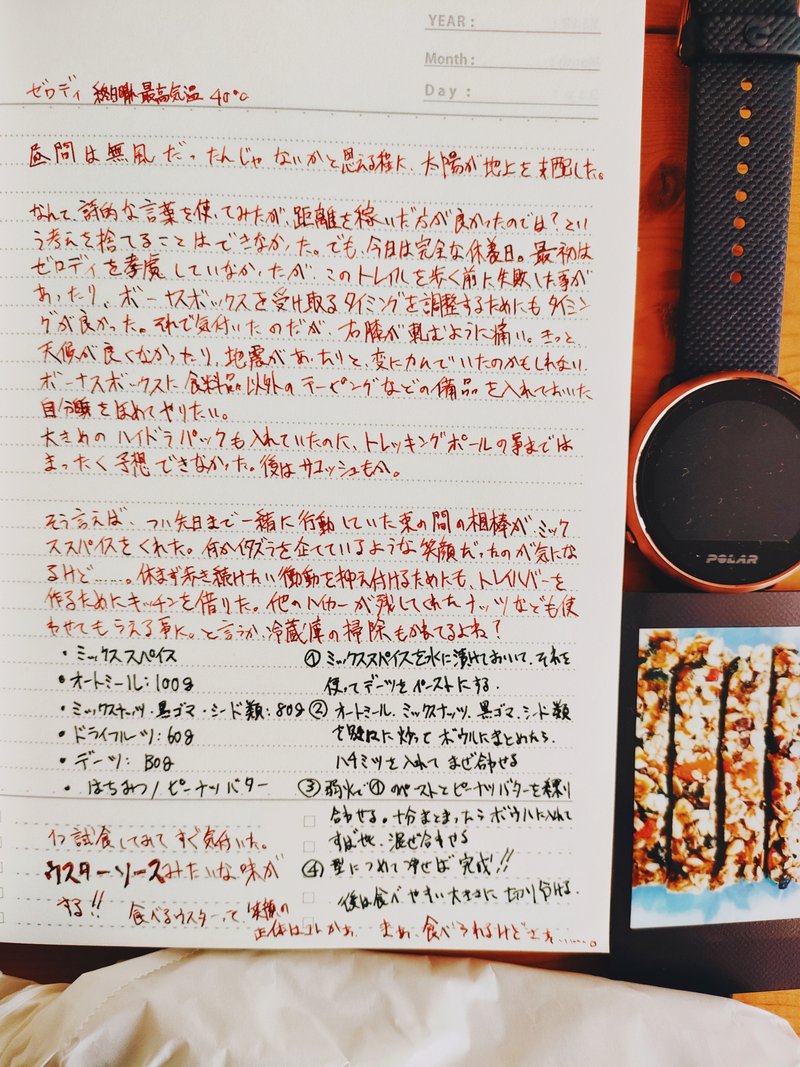 YEAR :
Month :
Day :
ゼロディ 終日晴 最高気温 40℃
昼間は無風だったんじゃないかと思える程に、太陽が地上を支配した。
なんて、詩的な言葉を使ってみたが、距離を稼いだ方が良かったのでは？とい
う考えを捨てることはできなかった。でも、今日は完全な休養日。最初は
ゼロディを考慮していなかったが、このトレイルを歩く前に失敗した事が
あったり、ボーナスボックスを受け取るタイミングを調整するためにもタイミン
グが良かった。それで気付いたのだが、右膝が軋むように痛い。きっと、
天候が良くなかったり、地震があったりと、変に力んでいたのかもしれない。
ボーナスボックスに食料品以外のテーピングなどの備品を入れておいた
自分をほめてやりたい。
大きめのハイドラパックも入れていたのに、トレッキングポールの事までは
まったく予想できなかった。後はサコッシュもか。
そう言えば、つい先日まで一緒に行動していた束の間の相棒がミック
ススパイスをくれた。何かイタズラを企てているような笑顔だったのが気にな
るけど……。休まず歩き続けたい衝動を抑え付けるためにも、トレイルバーを
作るためにキッチンを借りた。他のハイカーが残してくれたナッツなども使
わせてもらえる事に。と言うか、冷蔵庫の掃除もかねてるよね？
・ミックススパイス
・オートミール：100g
・ミックスナッツ・黒ゴマ・シード類：80g
・ドライフルーツ：60g
・デーツ：130g
・はちみつ / ピーナッツバター
① ミックススパイスを水に漬けておいて、それを
使ってデーツをペーストにする.
② オートミール、ミックスナッツ、黒ゴマ、シード類
を軽に炒ってボウルにまとめたら
ハチミツを入れてまぜ合わせる
③ 弱火で①のペーストとピーナッツバターを練り
合わせる。十分まとまったらボウルに入れて
すばやく混ぜ合わせる
④ 型につめて冷せば完成!!
後は食べやすい大きさに切り分ける.
1つ試食してみてすぐ気付いた。
ウスターソースみたいな味が
する!! 食べるウスターって 笑顔の
正体はコレかぁ… まぁ、食べられるけどさぁ……。
POLAR